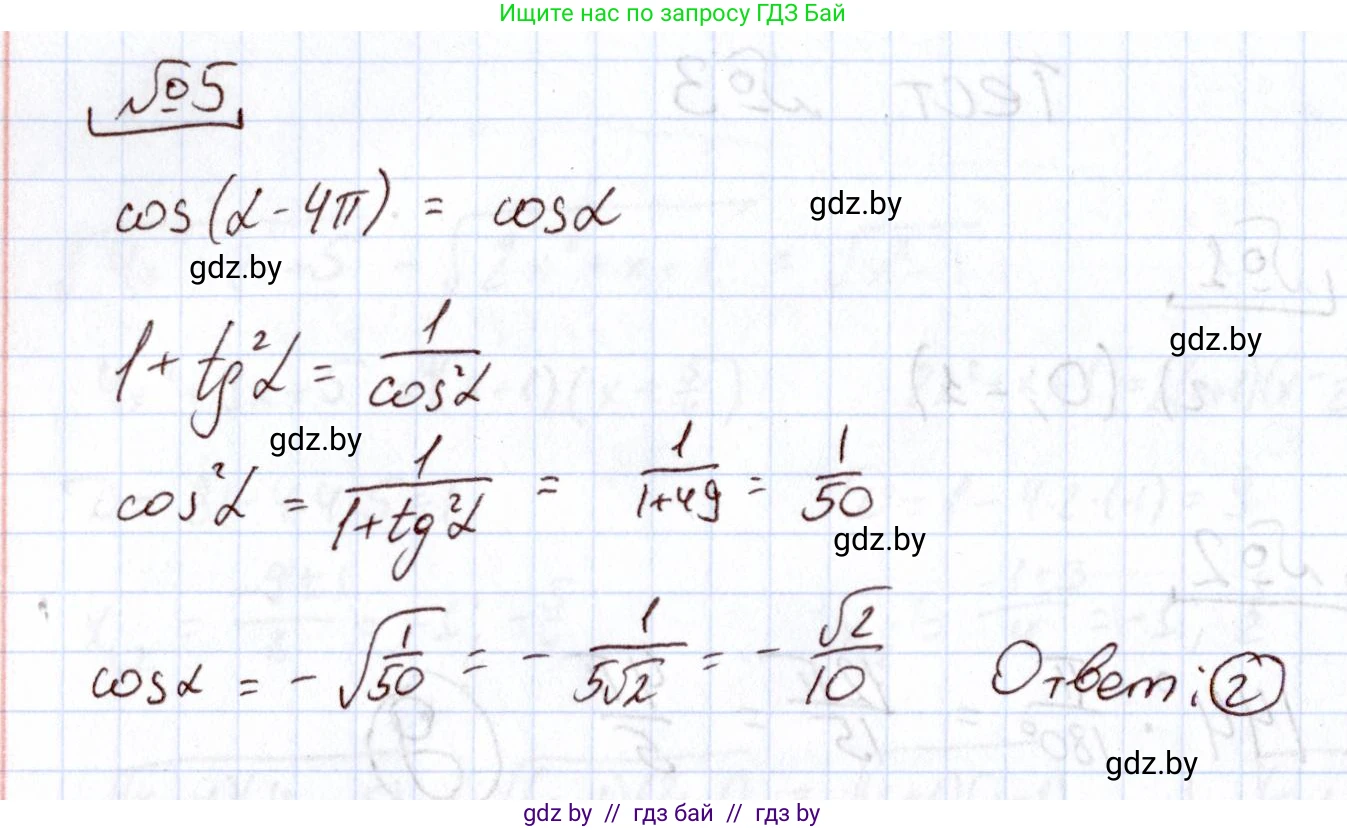 Ищите нас по запросу ГДЗ Бай
№5
cos(α - 4π) = cosα
gdz.by
gdz.by
1 + tg²α = 1/cos²α
gdz.by
gdz.by
cos²α = 1/(1+tg²α) = 1/(1+49) = 1/50
gdz.by
cosα = -√(1/50) = -1/(5√2) = -√2/10 Ответ: 2
gdz.by
gdz.by // гдз бай // гдз by